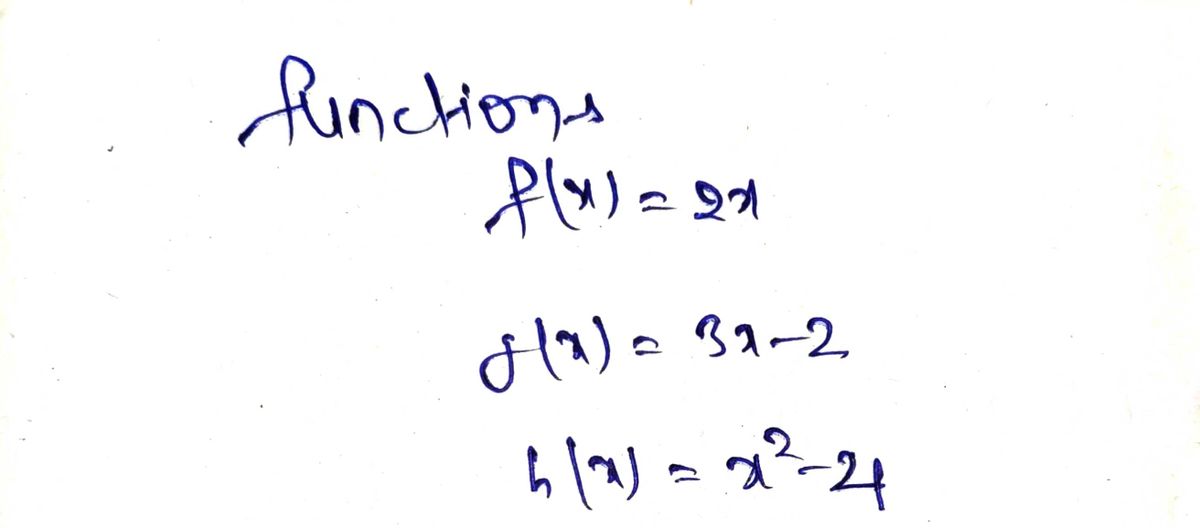 functions
f(x) = 2x
g(x) = 3x-2
h(x) = x²-4